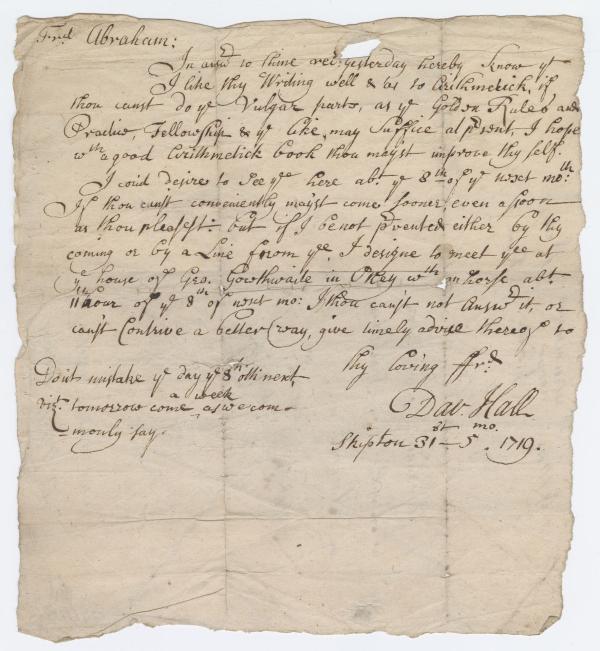 Frd Abraham:
In answr to thine recd: yesterday hereby know ye
I like thy Writing well & as to Arithmetick, if
thou canst do ye Vulgar parts, as ye Golden Rules and
Practice, Fellowship & ye like, may Suffice at prsent, I hope
wth a good Arithmetick book thou mayst improve thy self.
I coud desire to See yee here abt. ye 8th of ye next mo:th
If thou canst conveniently mayst come sooner even assoon
as thou pleasest: but if I be not prvented either by thy
coming or by a Line from ye. I designe to meet yee at
ye house of Geo. Gowthwaite in Otley wth an horse abt.
11th hour of ye 8th of next mo: Ithou canst not Answr it, or
canst Contrive a better way, give timely advice thereof to
thy loving ffrd.
Dav. Hall
Skipton 31st - 5 mo. 1719.
Don't mistake ye day ye 8th oth next
viz. tomorrow come a week as we com=
=monly say.